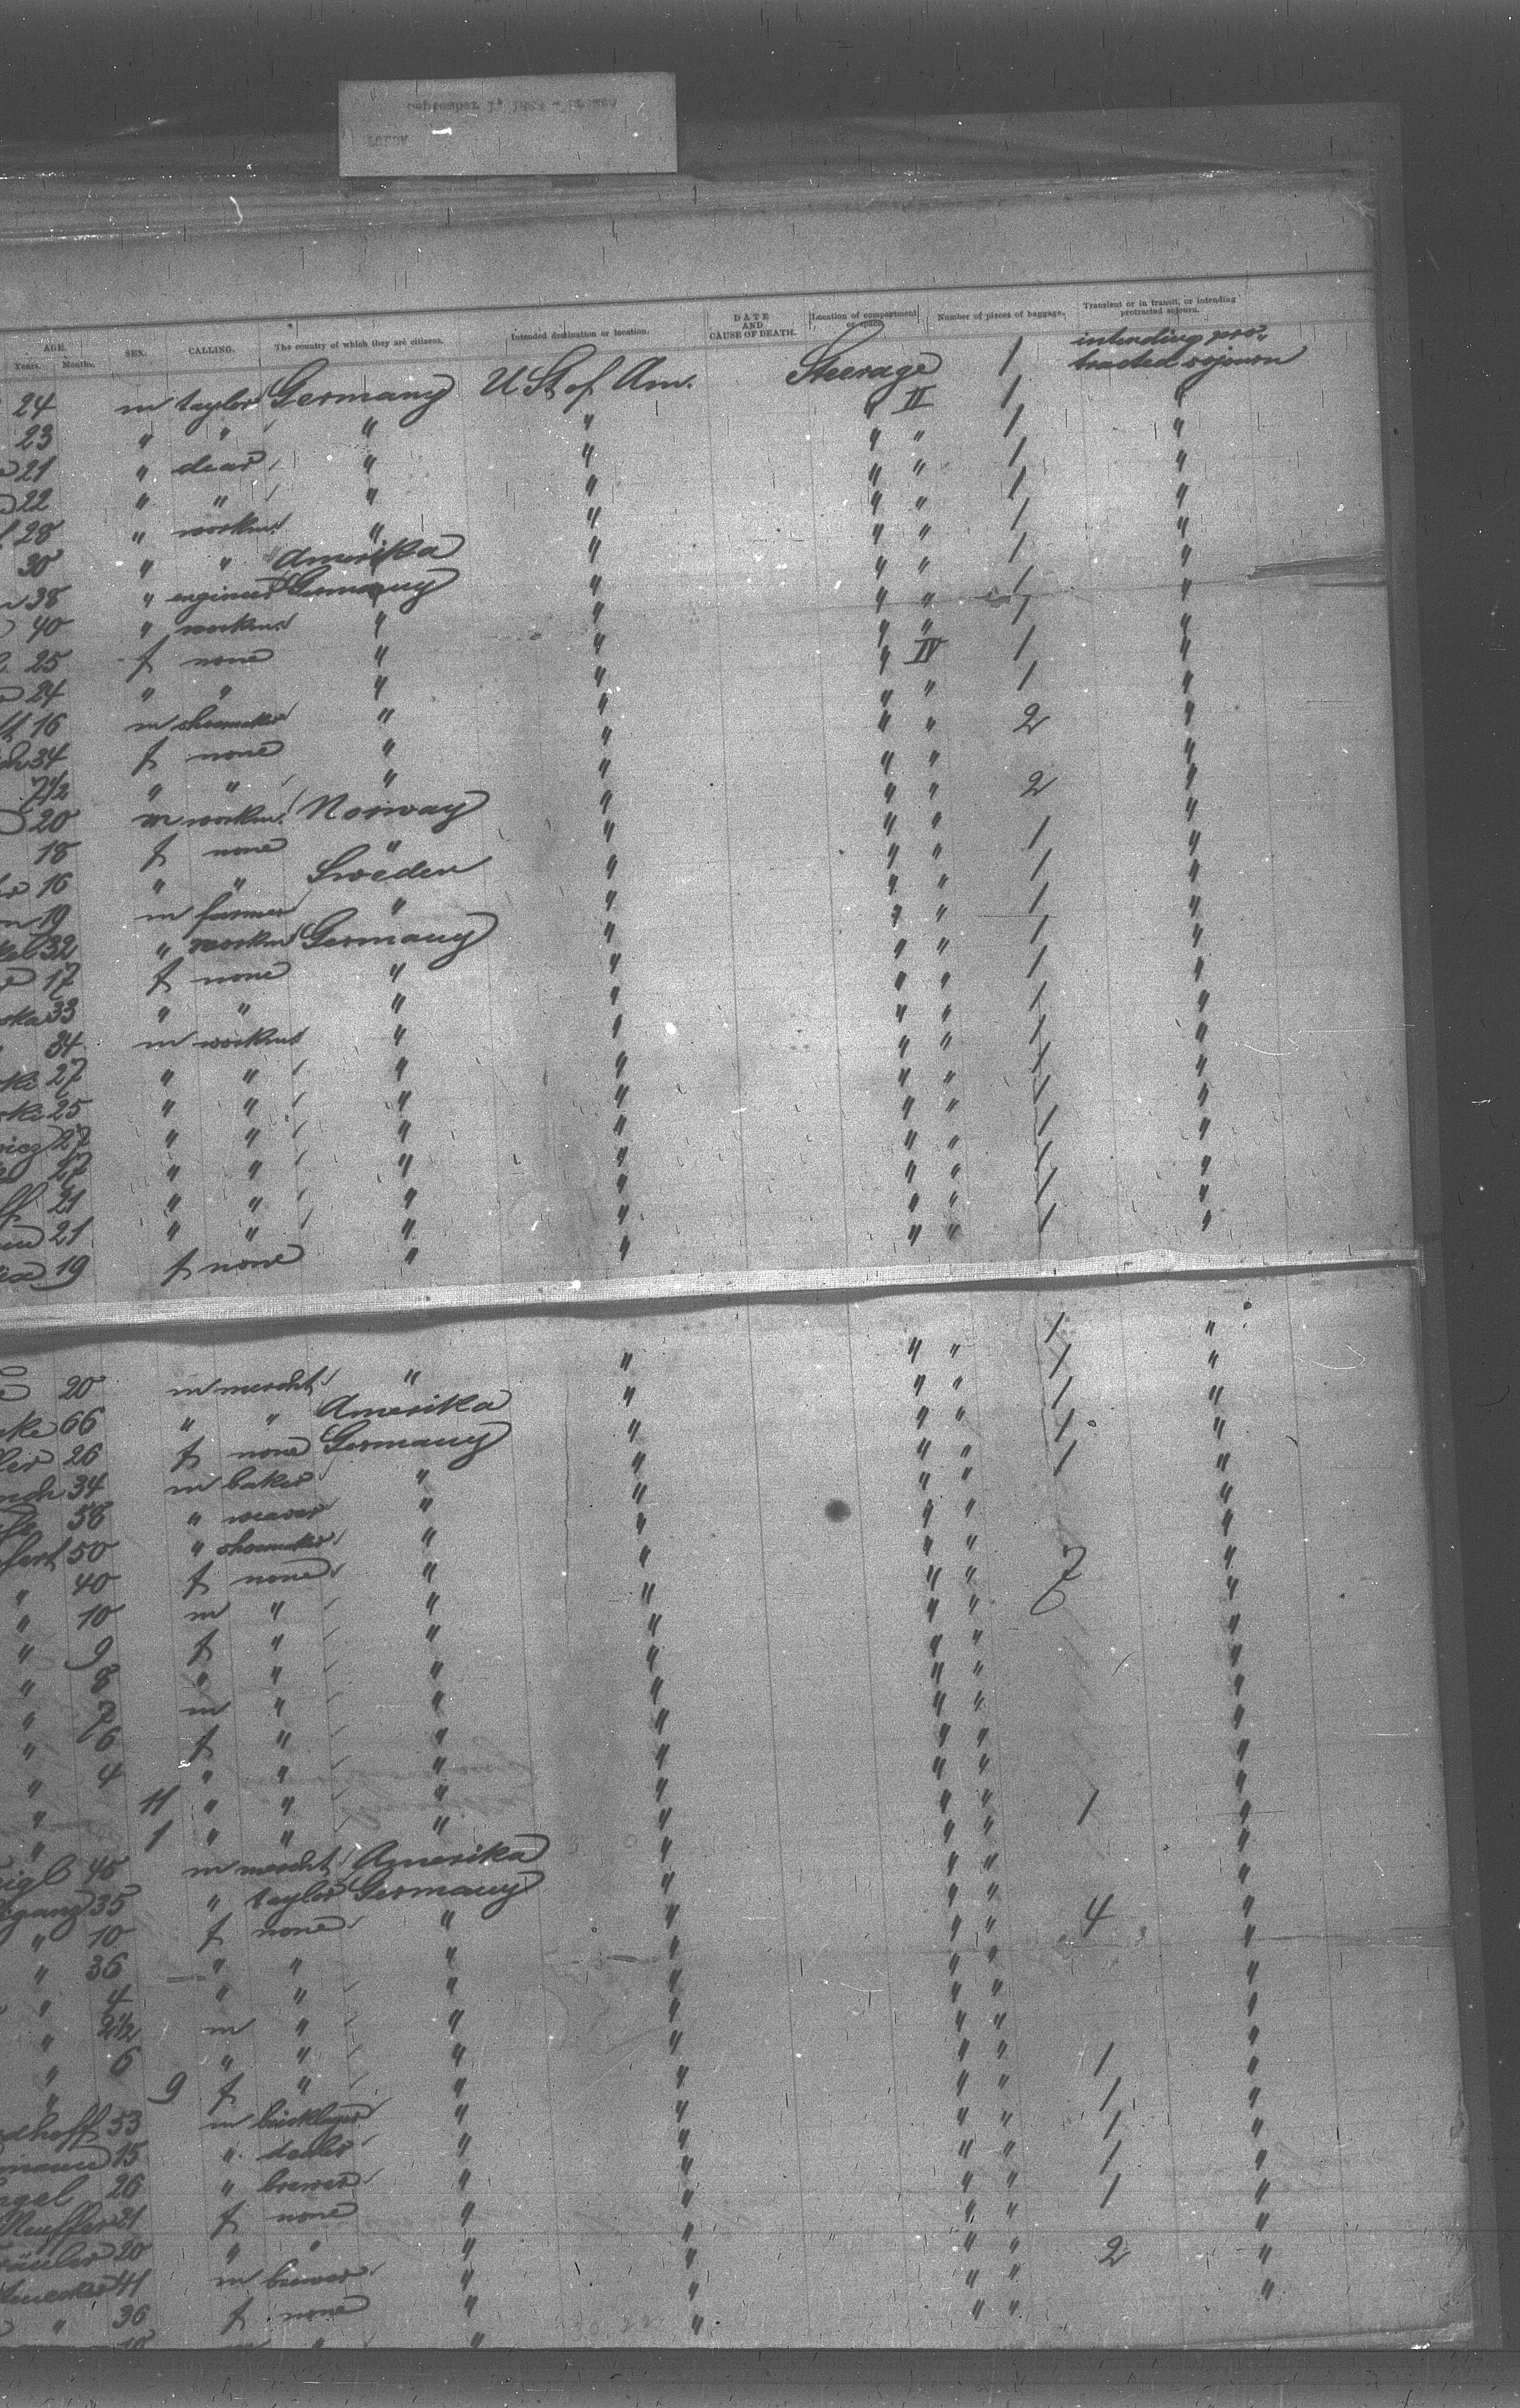 AGE. SEX. CALLING. The country of which they are citizens. Intended destination or location. DATE AND CAUSE OF DEATH. Location of compartment or space. Number of pieces of baggage. Transient or in transit, or intending protracted sojourn.
Years. Months.
24 m taylor Germany U St of Am. Steerage 1 intending protracted sojourn
23 " " " " " II 1 "
21 " " " " " 1 "
22 " " " " " " 1 "
28 " workm. " " " " 1 "
30 " " Amerika " " " 1 "
38 " engineer Germany " " " 1 "
40 " workm. " " " " 1 "
25 f none " " " IV 1 "
24 " " " " " " 1 "
16 m shoemaker " " " " 2 "
34 f none " " " " "
7 1/2 " " " " " " 2 "
20 m workm. Norway " " " "
18 f none " " " " 1 "
16 " " Sweden " " " 1 "
19 m farmer " " " " 1 "
32 " workm Germany " " " 1 "
17 f none " " " " 1 "
ska 33 " " " " " " 1 "
34 m workm " " " " 1 "
ski 27 " " " " " " 1 "
ski 25 " " " " " " 1 "
wicz 27 " " " " " " 1 "
27 " " " " " " 1 "
ff 21 " " " " " " 1 "
21 " " " " " " 1 "
19 f none " "
20 m mercht. " " " " 1 "
ke 66 " " Amerika " " " 1 "
ler 26 f none Germany " " " 1 "
nch 34 m baker " " " " 1 "
58 " weaver " " " " 1 "
fert 50 " shoemaker " " " " "
" 40 f none " " " " 7 "
" 10 m " " " " " "
" 9 f " " " " " "
" 8 " " " " " " "
" 7 m " " " " " "
" 6 f " " " " " "
" 4 " " " " " " "
" 11 " " " " " " "
" 1 " " " " " " "
eigl 45 m mercht. Amerika " " " 1 "
gang 35 " taylor Germany " " " "
" 10 f none " " " " 4 "
" 36 " " " " " " "
" 4 " " " " " " "
" 2 1/2 m " " " " " "
" 6 " " " " " " "
" 9 f " " " " " "
dhoff 53 m bricklayer " " " " 1 "
mann 15 " " " " " 1 "
ngel 26 " brewer " " " " 1 "
Neuffer 21 f none " " " " 1 "
20 " " " " " " 1 "
41 m brewer " " " " 2 "
" 36 f none " " " " "